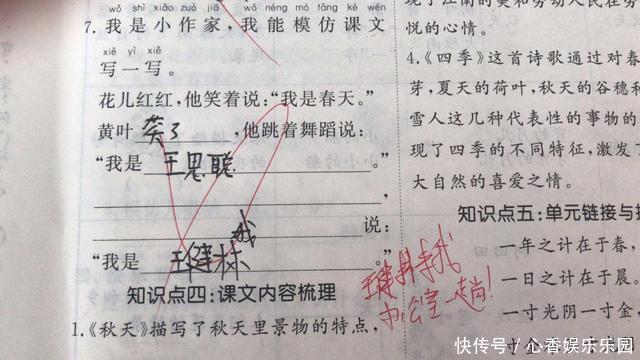 wǒ shì xiǎo zuò jiā wǒ néng mó fǎng kè wén
7.我是小作家,我能模仿课文
xiě yì xiě
写一写。
花儿红红,他笑着说:“我是春天。”
黄叶 黄了 ,他跳着舞蹈说:
“我是 王思聪 。”
我 说:
“我是 王健林 。”
知识点四:课文内容梳理
1.《秋天》描写了秋天里景物的特点,
悦的心情。
4.《四季》这首诗歌通过对春
芽,夏天的荷叶,秋天的谷穗和
雪人这几种代表性的事物的
现了四季的不同特征,激发了
大自然的喜爱之情。
知识点五:单元链接与
一年之计在于春,
一日之计在于晨。
一寸光阴一寸金,
办公室一趟!
快传号/心香娱乐乐园